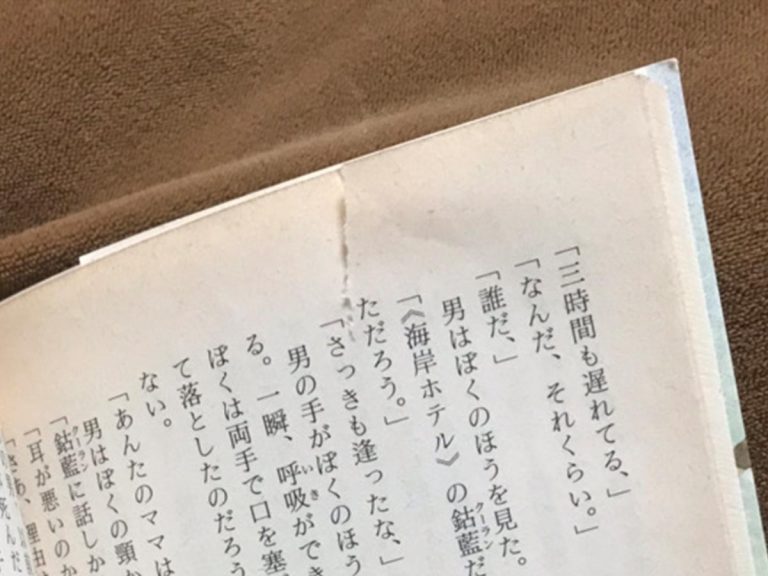 「三時間も遅れてる、」
「なんだ、それくらい。」
「誰だ、」
男はぼくのほうを見た。
「《海岸ホテル》の鈷藍クーランだ
ただろう。」
「さっきも逢ったな、」
男の手がぼくのほう
る。一瞬、呼吸いきができ
ぼくは両手で口を塞
て落としたのだろう
ない。
「あんたのママは
男はぼくの頸か
「鈷藍クーランに話しか
「耳が悪いのか
理由
死んだ